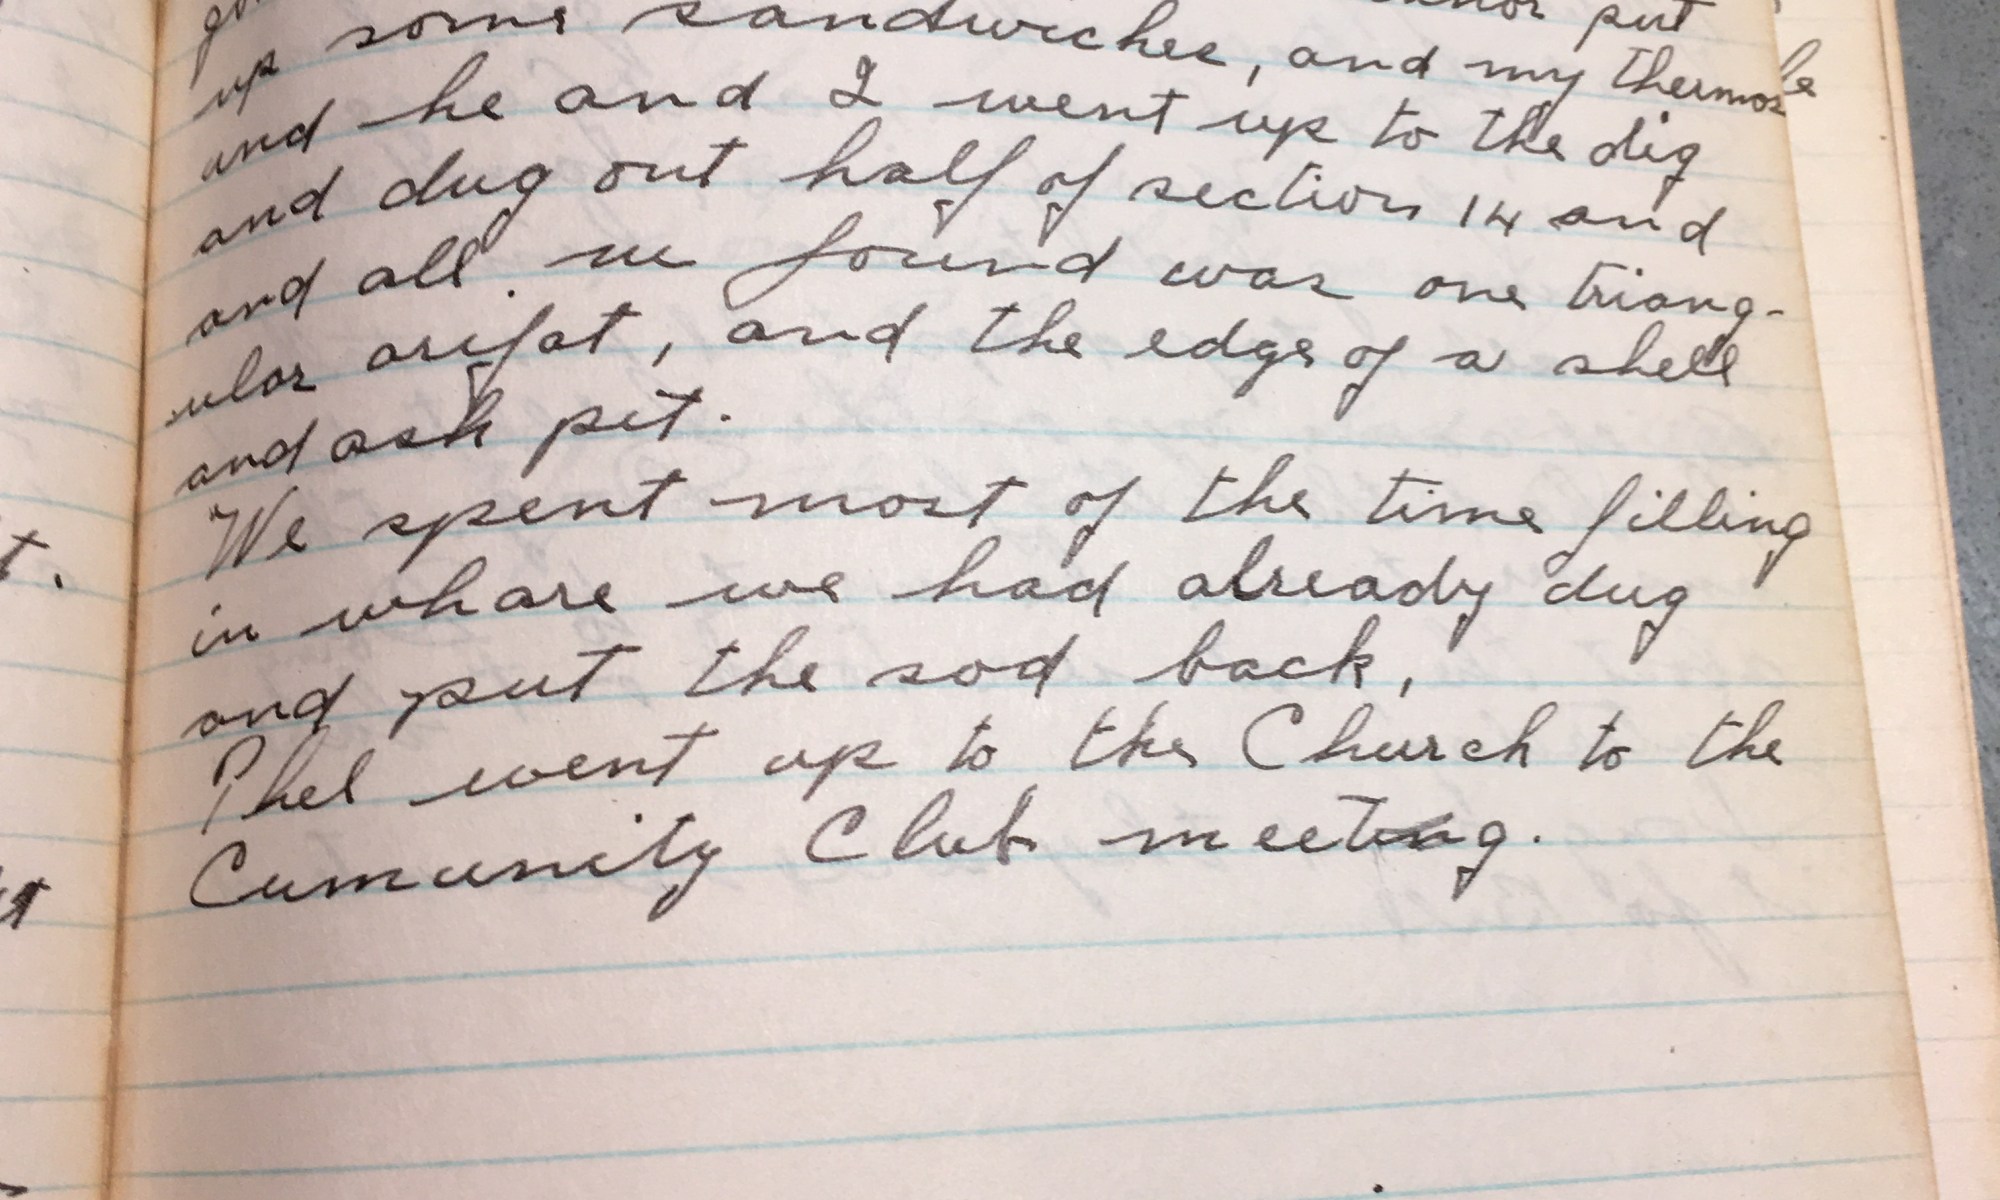 put
up some sandwiches, and my thermos
and he and I went up to the dig
and dug out half of section 14 and
and all we found was one triang-
ular arifat, and the edge of a shell
and ash pit.
We spent most of the time filling
in whare we had already dug
and put the sod back,
Phel went up to the Church to the
Cumunity Club meeting.